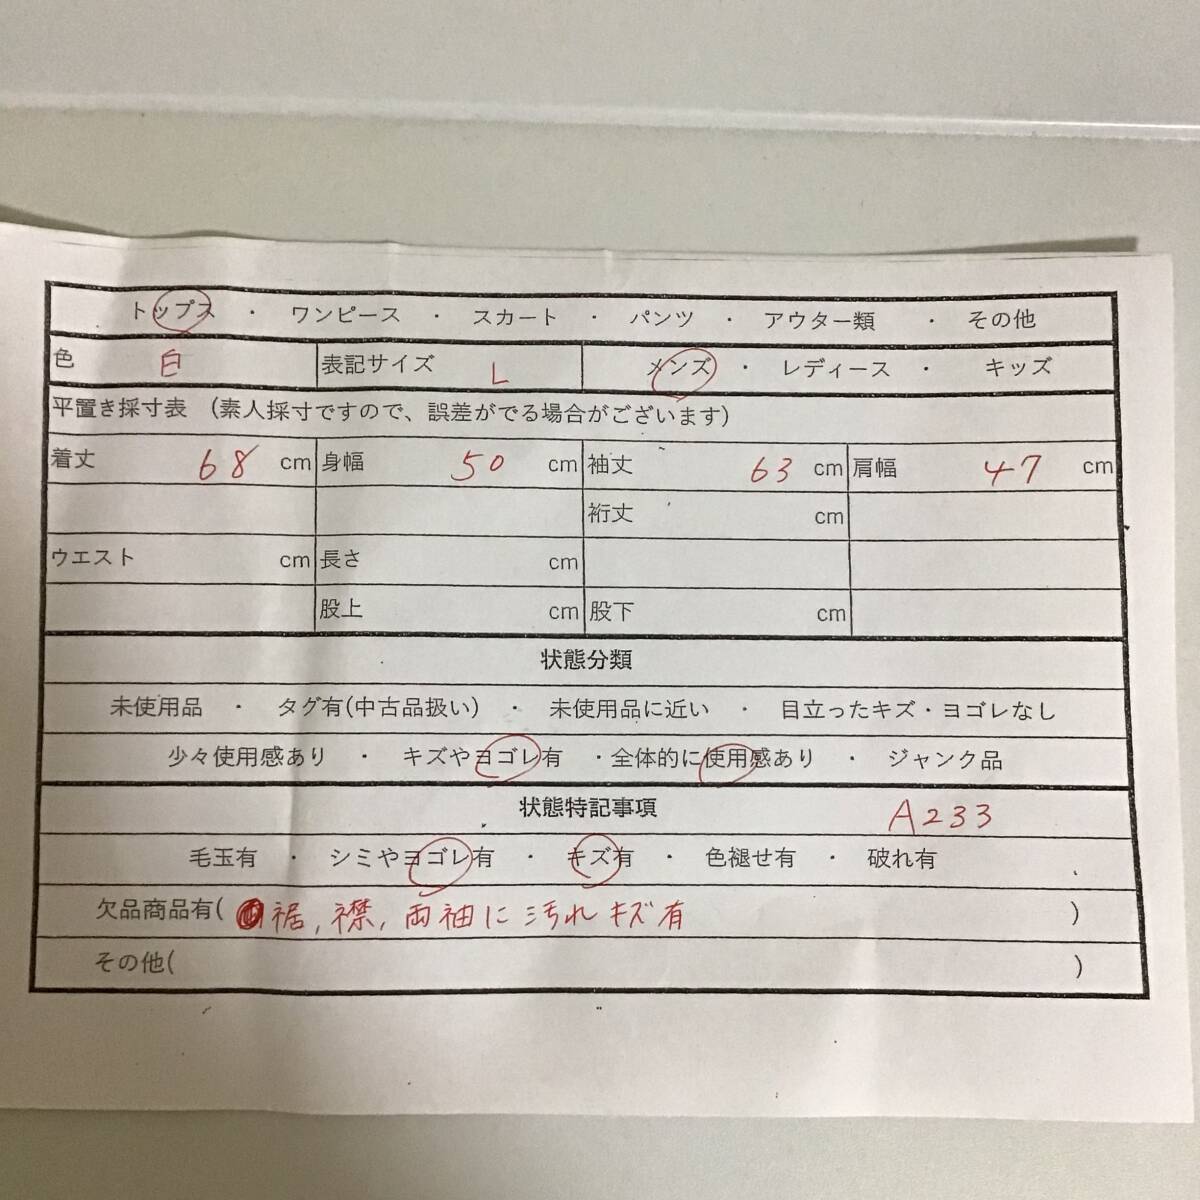 トップス ・ ワンピース ・ スカート ・ パンツ ・ アウター類 ・ その他
色 白 表記サイズ L メンズ ・ レディース ・ キッズ
平置き採寸表 (素人採寸ですので、誤差がでる場合がございます)
着丈 68 cm 身幅 50 cm 袖丈 63 cm 肩幅 47 cm
裄丈 cm
ウエスト cm 長さ cm
股上 cm 股下 cm
状態分類
未使用品 ・ タグ有(中古品扱い) ・ 未使用品に近い ・ 目立ったキズ・ヨゴレなし
少々使用感あり ・ キズやヨゴレ有 ・全体的に使用感あり ・ ジャンク品
状態特記事項 A233
毛玉有 ・ シミやヨゴレ有 ・ キズ有 ・ 色褪せ有 ・ 破れ有
欠品商品有( 裾,襟,両袖に汚れキズ有 )
その他( )